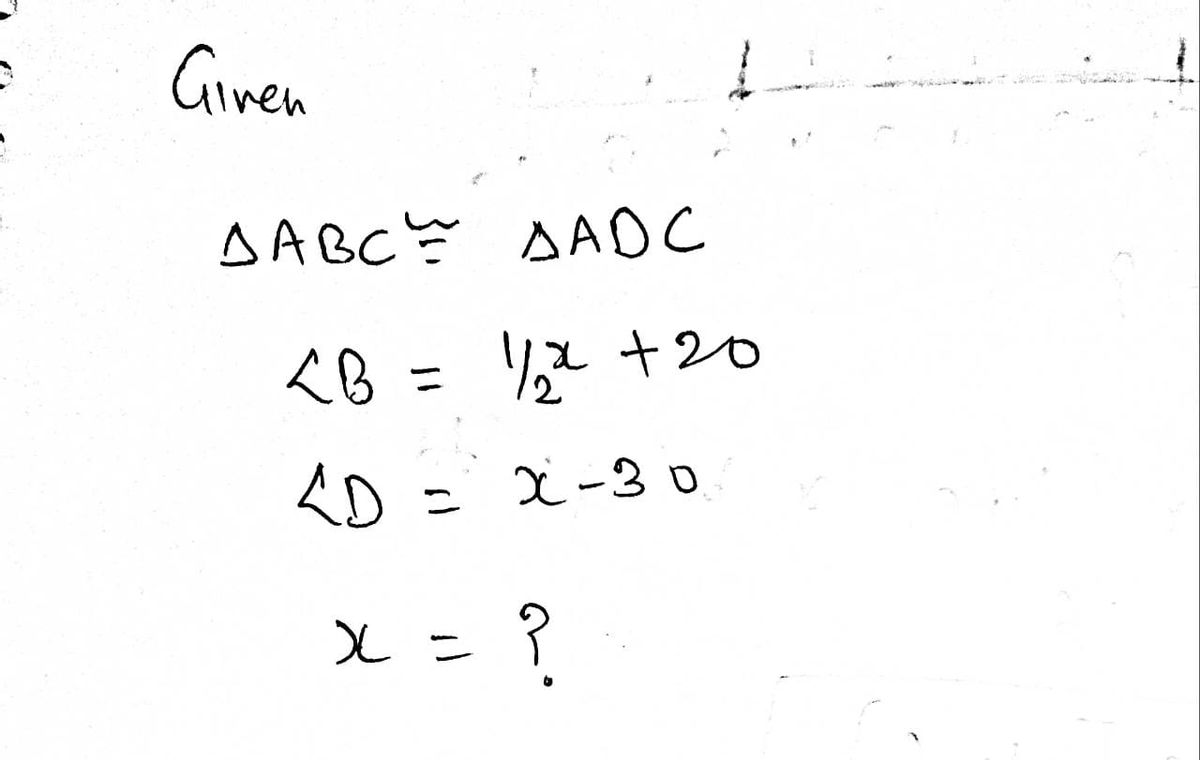 Given
ΔABC ≅ ΔADC
∠B = 1/2x + 20
∠D = x - 30
x = ?